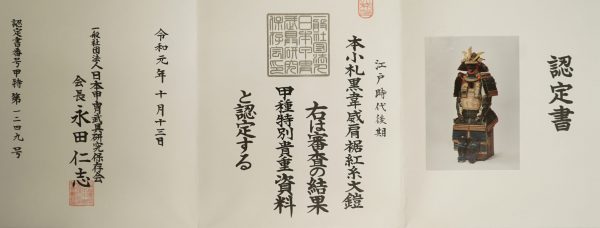 認定書
江戸時代後期
本小札黒韋威肩裾紅糸大鎧
右は審査の結果
甲種特別貴重資料
と認定する
令和元年十月十三日
一般社団法人日本甲冑武具研究保存会
会長 永田仁志
認定書番号甲特第一二四九号